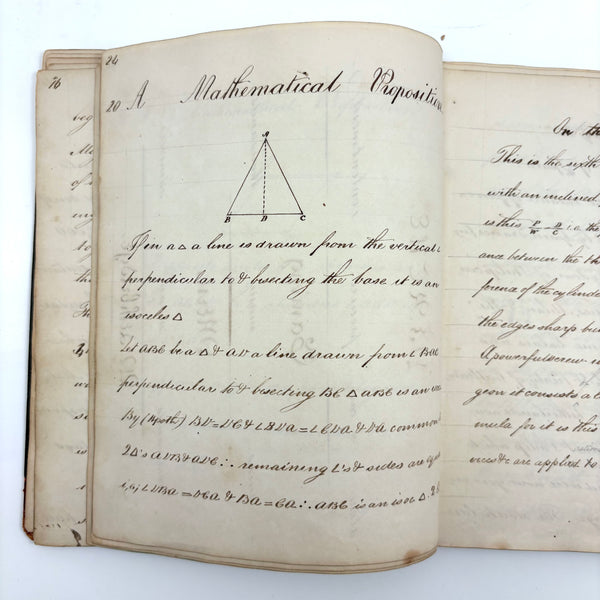 76
24
20 A Mathematical Proposition
A
B D C
If in a △ a line is drawn from the vertical ∠
perpendicular to & bisecting the base it is an
isoceles △
Let ABC be a △ & AD a line drawn from ∠ BAC
perpendicular to & bisecting BC △ ABC is an
By (Hypoth) BD = DC & ∠ BDA = ∠ CDA & DA common
2△'s ADB & ADC ∴ remaining ∠'s & sides are
∠ DBA = DCA & BA = CA ∴ ABC is an isoc △.
On th
This is the sixth
with an inclined
is this P/W = i.e. the
ance between the th
ference of the cylinde
the edges sharp bu
A powerful screw is
geon it consists a
mula for it is this
nces &c are applied to